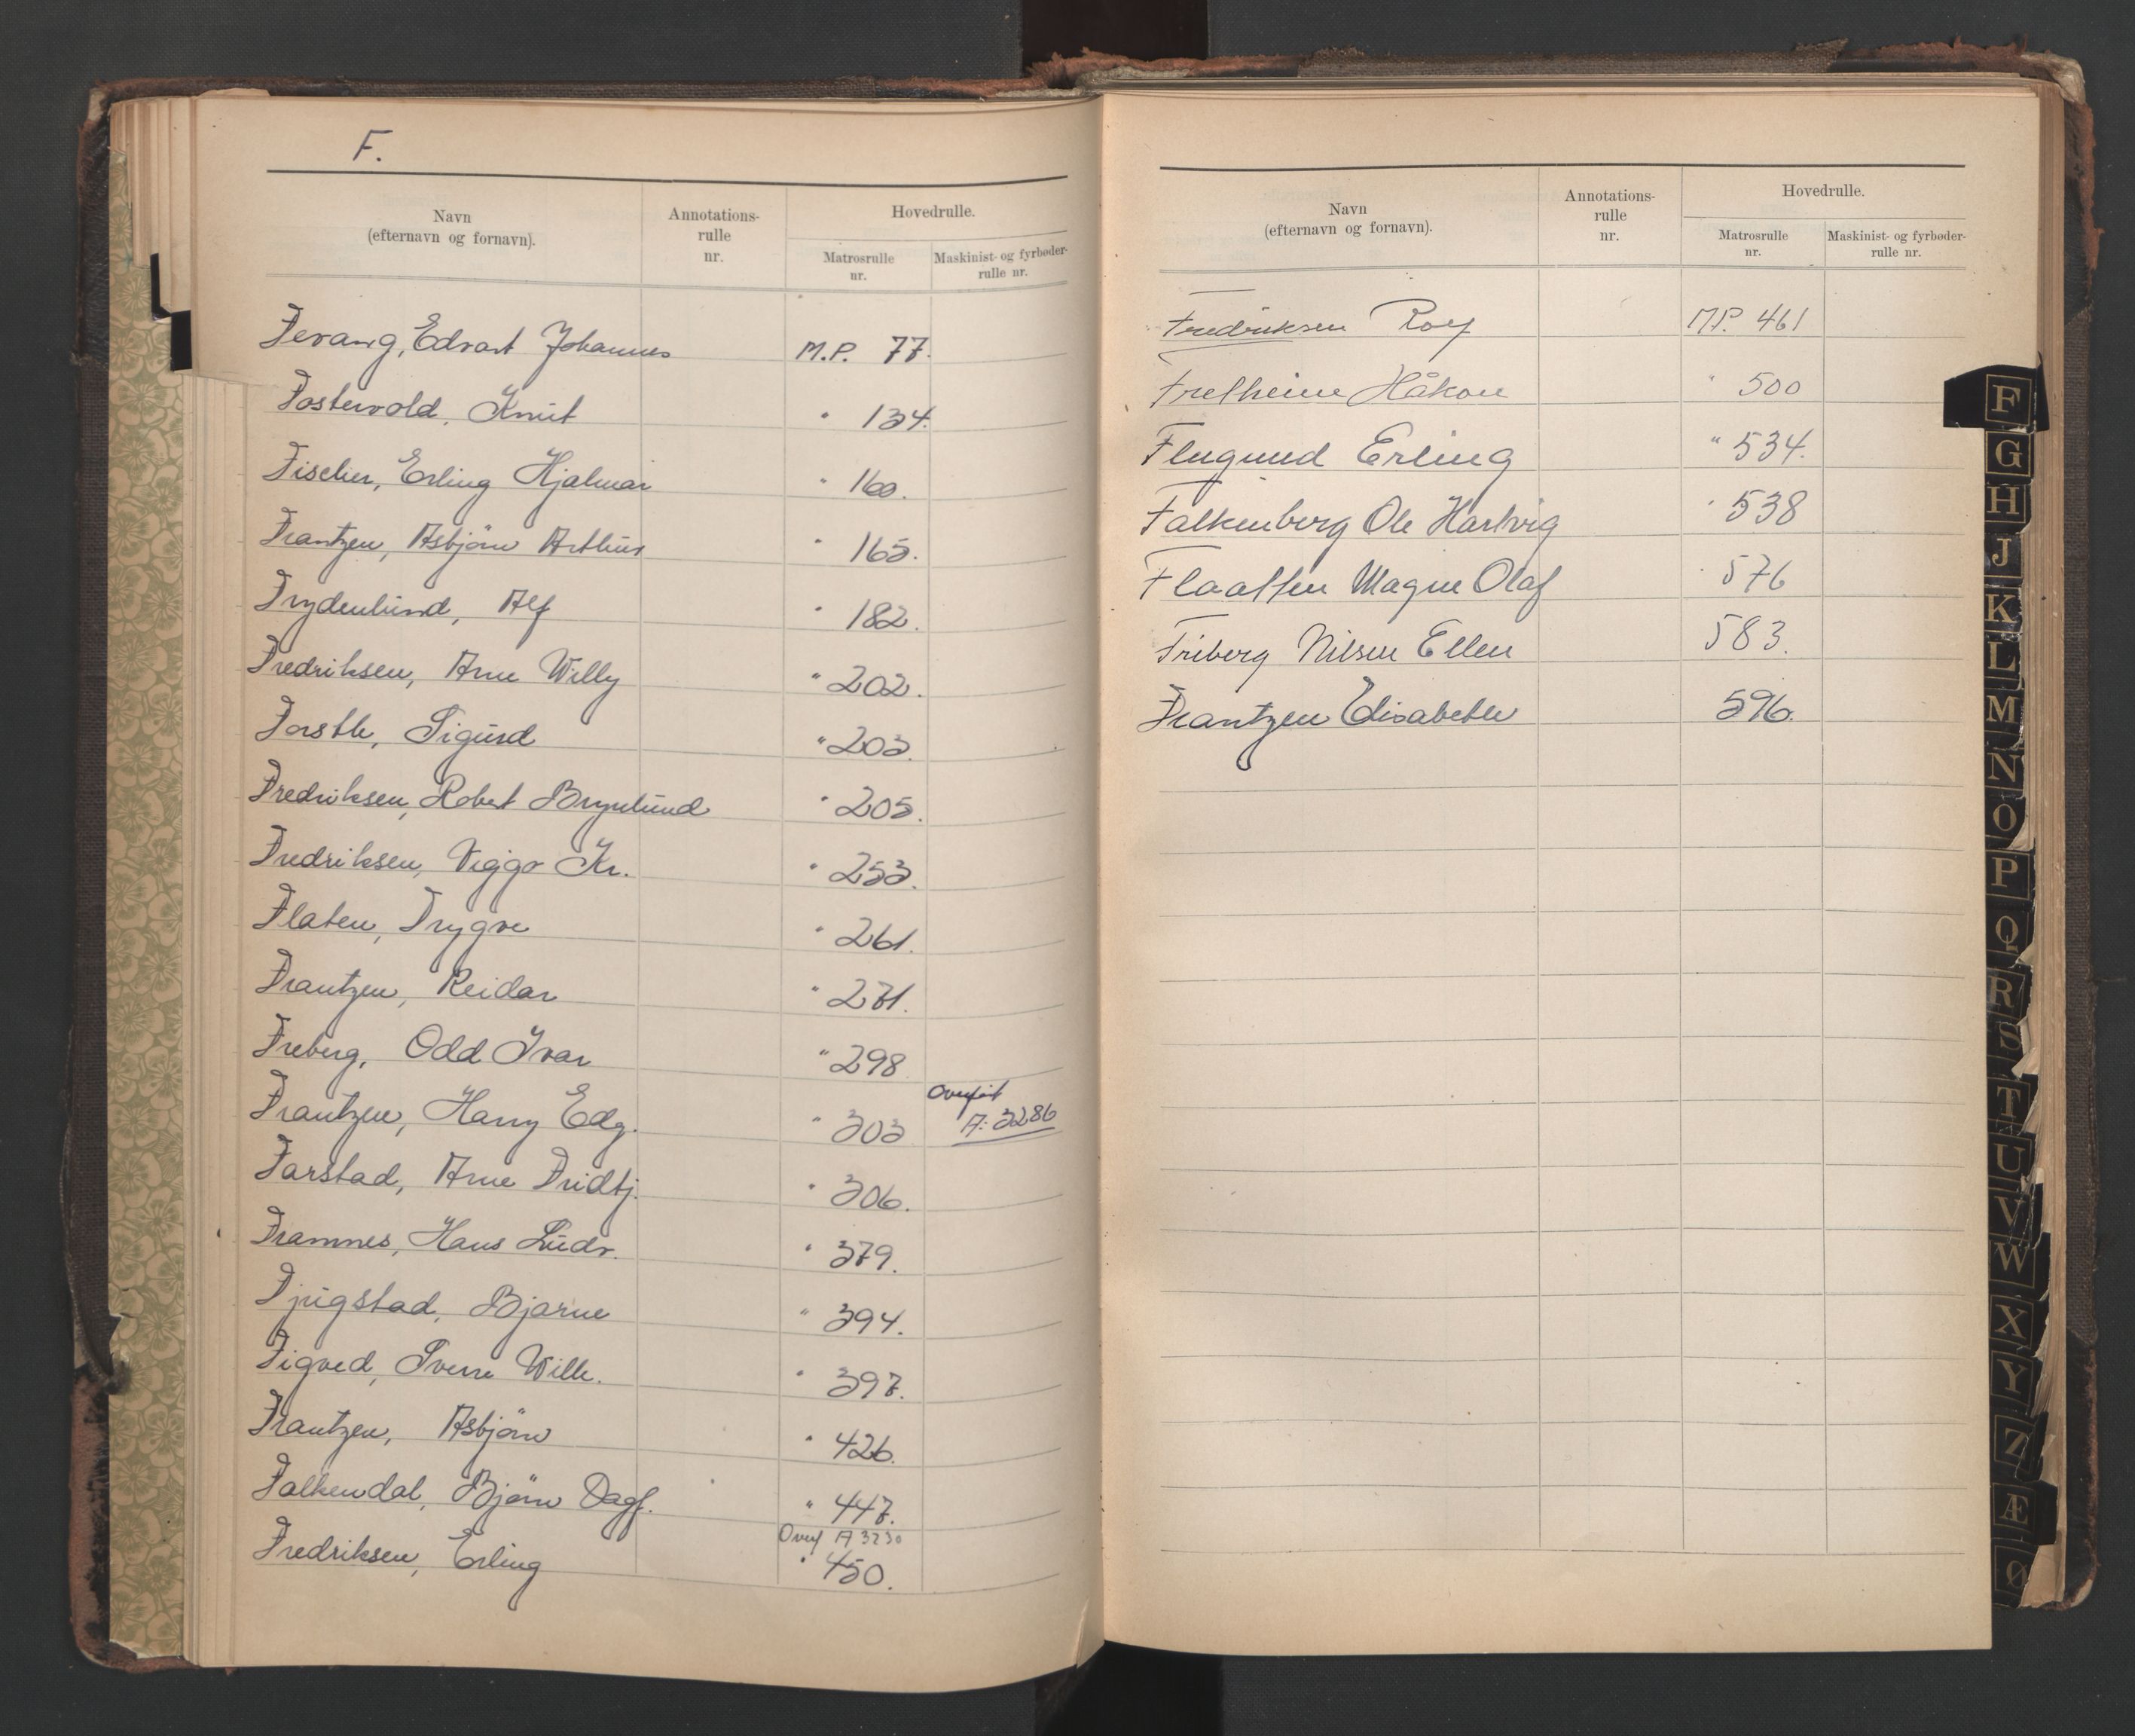 F.
Navn
(efternavn og fornavn).
Annotations-
rulle
nr.
Hovedrulle.
Matrosrulle
nr.
Maskinist- og fyrbøder-
rulle nr.
Fevang, Edvart Johannes M.P. 77.
Fostervold, Knut " 134.
Fischer, Erling Hjalmar " 160.
Frantzen, Asbjörn Arthur " 165.
Frydenlund, Alf " 182.
Fredriksen, Arne Willy " 202.
Forsth, Sigurd " 203.
Fredriksen, Robert Brynlund " 205.
Fredriksen, Viggo Kr. " 253.
Flaten, Trygve " 261.
Frantzen, Reidar " 271.
Freberg, Odd Ivar " 298
Overført
Frantzen, Harry Edg. " 303 A: 3286
Farstad, Arne Fridtj. " 306.
Framnes, Hans Ludv. " 379.
Fjugstad, Bjarne " 394.
Figved, Sverre Wilh. " 397.
Frantzen, Asbjörn " 426.
Falkendal, Bjørn Dagf. " 447.
Overf A 3230
Fredriksen, Erling " 450.
Navn
(efternavn og fornavn).
Annotations-
rulle
nr.
Hovedrulle.
Matrosrulle
nr.
Maskinist- og fyrbøder-
rulle nr.
Fredriksen Rolf M.P. 461
Fretheim Håkon " 500
Flugund Erling " 534.
Falkenberg Ole Hartvig " 538
Flaatten Magne Olaf " 576
Friberg Nilsen Ellen 583.
Frantzen Elisabeth 596.
F
G
H
J
K
L
M
N
O
P
Q
R
S
T
U
V
W
X
Y
Z
Æ
Ø